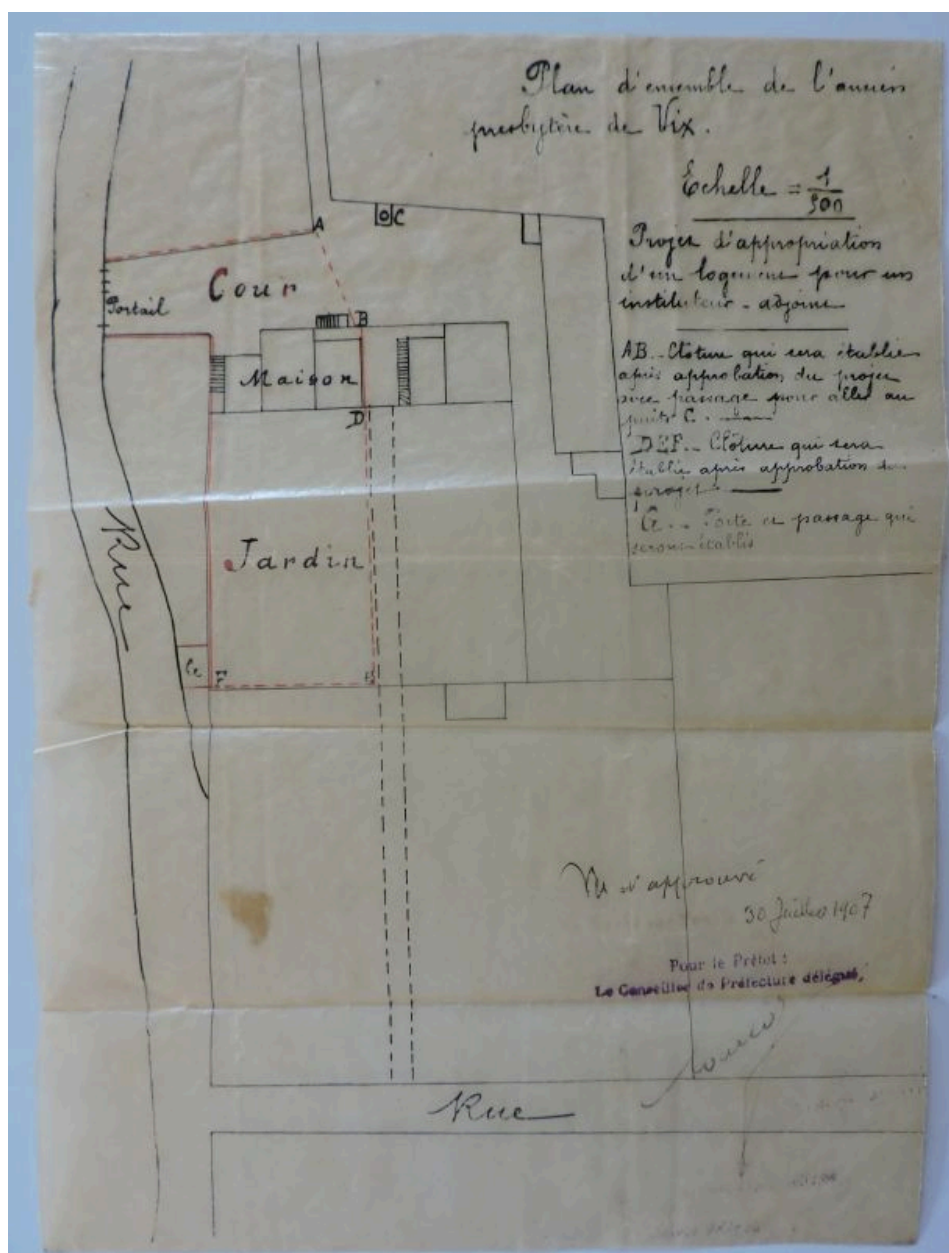 Plan d'ensemble de l'ancien
presbytère de Vix.
Echelle = 1/500
Projet d'appropriation
d'un logement pour un
instituteur-adjoint
AB._ Clôture qui sera établie
après approbation du projet
avec passage pour aller au
puits C.
DEF._ Clôture qui sera
établie après approbation du
projet
G._ Porte et passage qui
seront établis
A
C
Cour
Portail
B
Maison
D
Rue
Jardin
G
F
E
Vu et approuvé
30 Juillet 1907
Pour le Préfet :
Le Conseiller de Préfecture délégué,
Rue